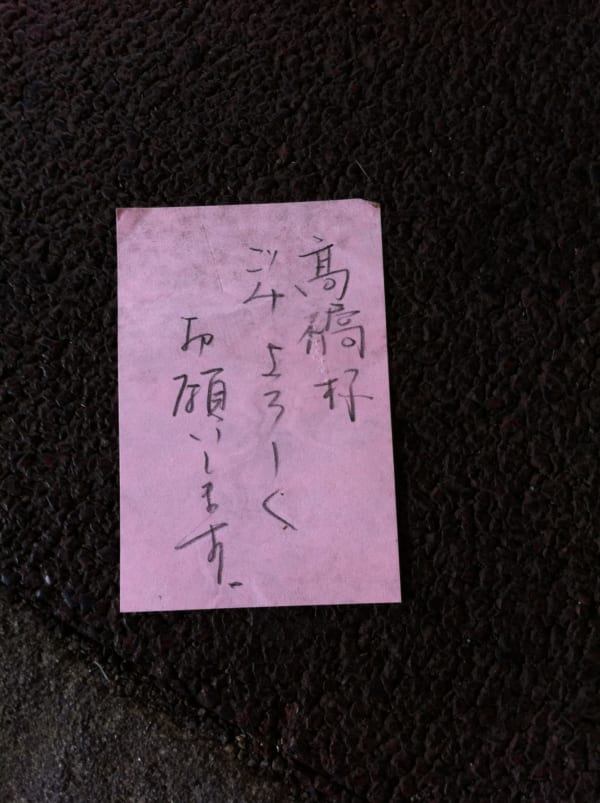 高橋様
ゴミよろしく
お願いします。